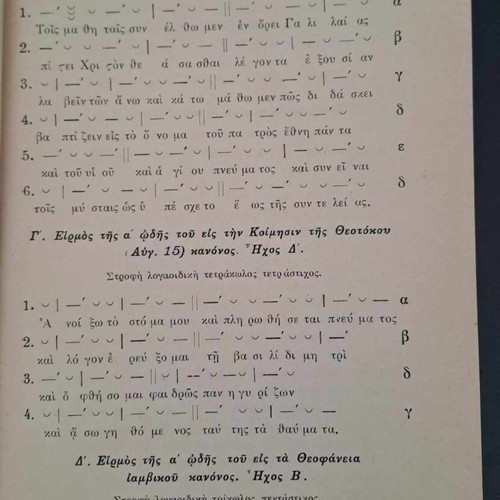 1. α
Τοῖς μα θη ταῖς συν έλ θω μεν ἐν ὄρει Γα λι λαί ας
2. β
πί ςει Χρι ςὸν θε ά σα σθαι λέ γον τα ἐ ξου σί αν
3. γ
λα βεῖν τῶν ἄ νω καὶ κά τω μά θω μεν πῶς δι δά σκει
4. δ
βα πτί ζειν εἰς τὸ ὄ νο μα τοῦ πα τρὸς ἔθνη πάν τα
5. ε
καὶ τοῦ υἱ οῦ καὶ ἁ γί ου πνεύ μα τος καὶ συν εῖ ναι
6. δ
τοῖς μύ σταις ὡς ὑ πέ σχε το ἕ ως τῆς συν τε λεί ας.
Γ΄. Εἱρμὸς τῆς α΄ ᾠδῆς τοῦ εἰς τὴν Κοίμησιν τῆς Θεοτόκου
(Αὐγ. 15) κανόνος. Ἦχος Δ΄.
Στροφὴ λογαοιδικὴ τετράκωλος τετράστιχος.
1. α
Ἀ νοί ξω τὸ στό μα μου καὶ πλη ρω θή σε ται πνεύ μα τος
2. β
καὶ λό γον ἐ ρεύ ξο μαι τῇ βα σι λί δι μη τρὶ
3. δ
καὶ ὀ φθή σο μαι φαι δρῶς παν η γυ ρί ζων
4. γ
καὶ ᾄ σω γη θό με νος ταύ της τὰ θαύ μα τα.
Δ΄. Εἱρμὸς τῆς α΄ ᾠδῆς τοῦ εἰς τὰ Θεοφάνεια
ἰαμβικοῦ κανόνος. Ἦχος Β΄.
Στροφὴ λογαοιδικὴ τρίκωλος πεντάστιχος.